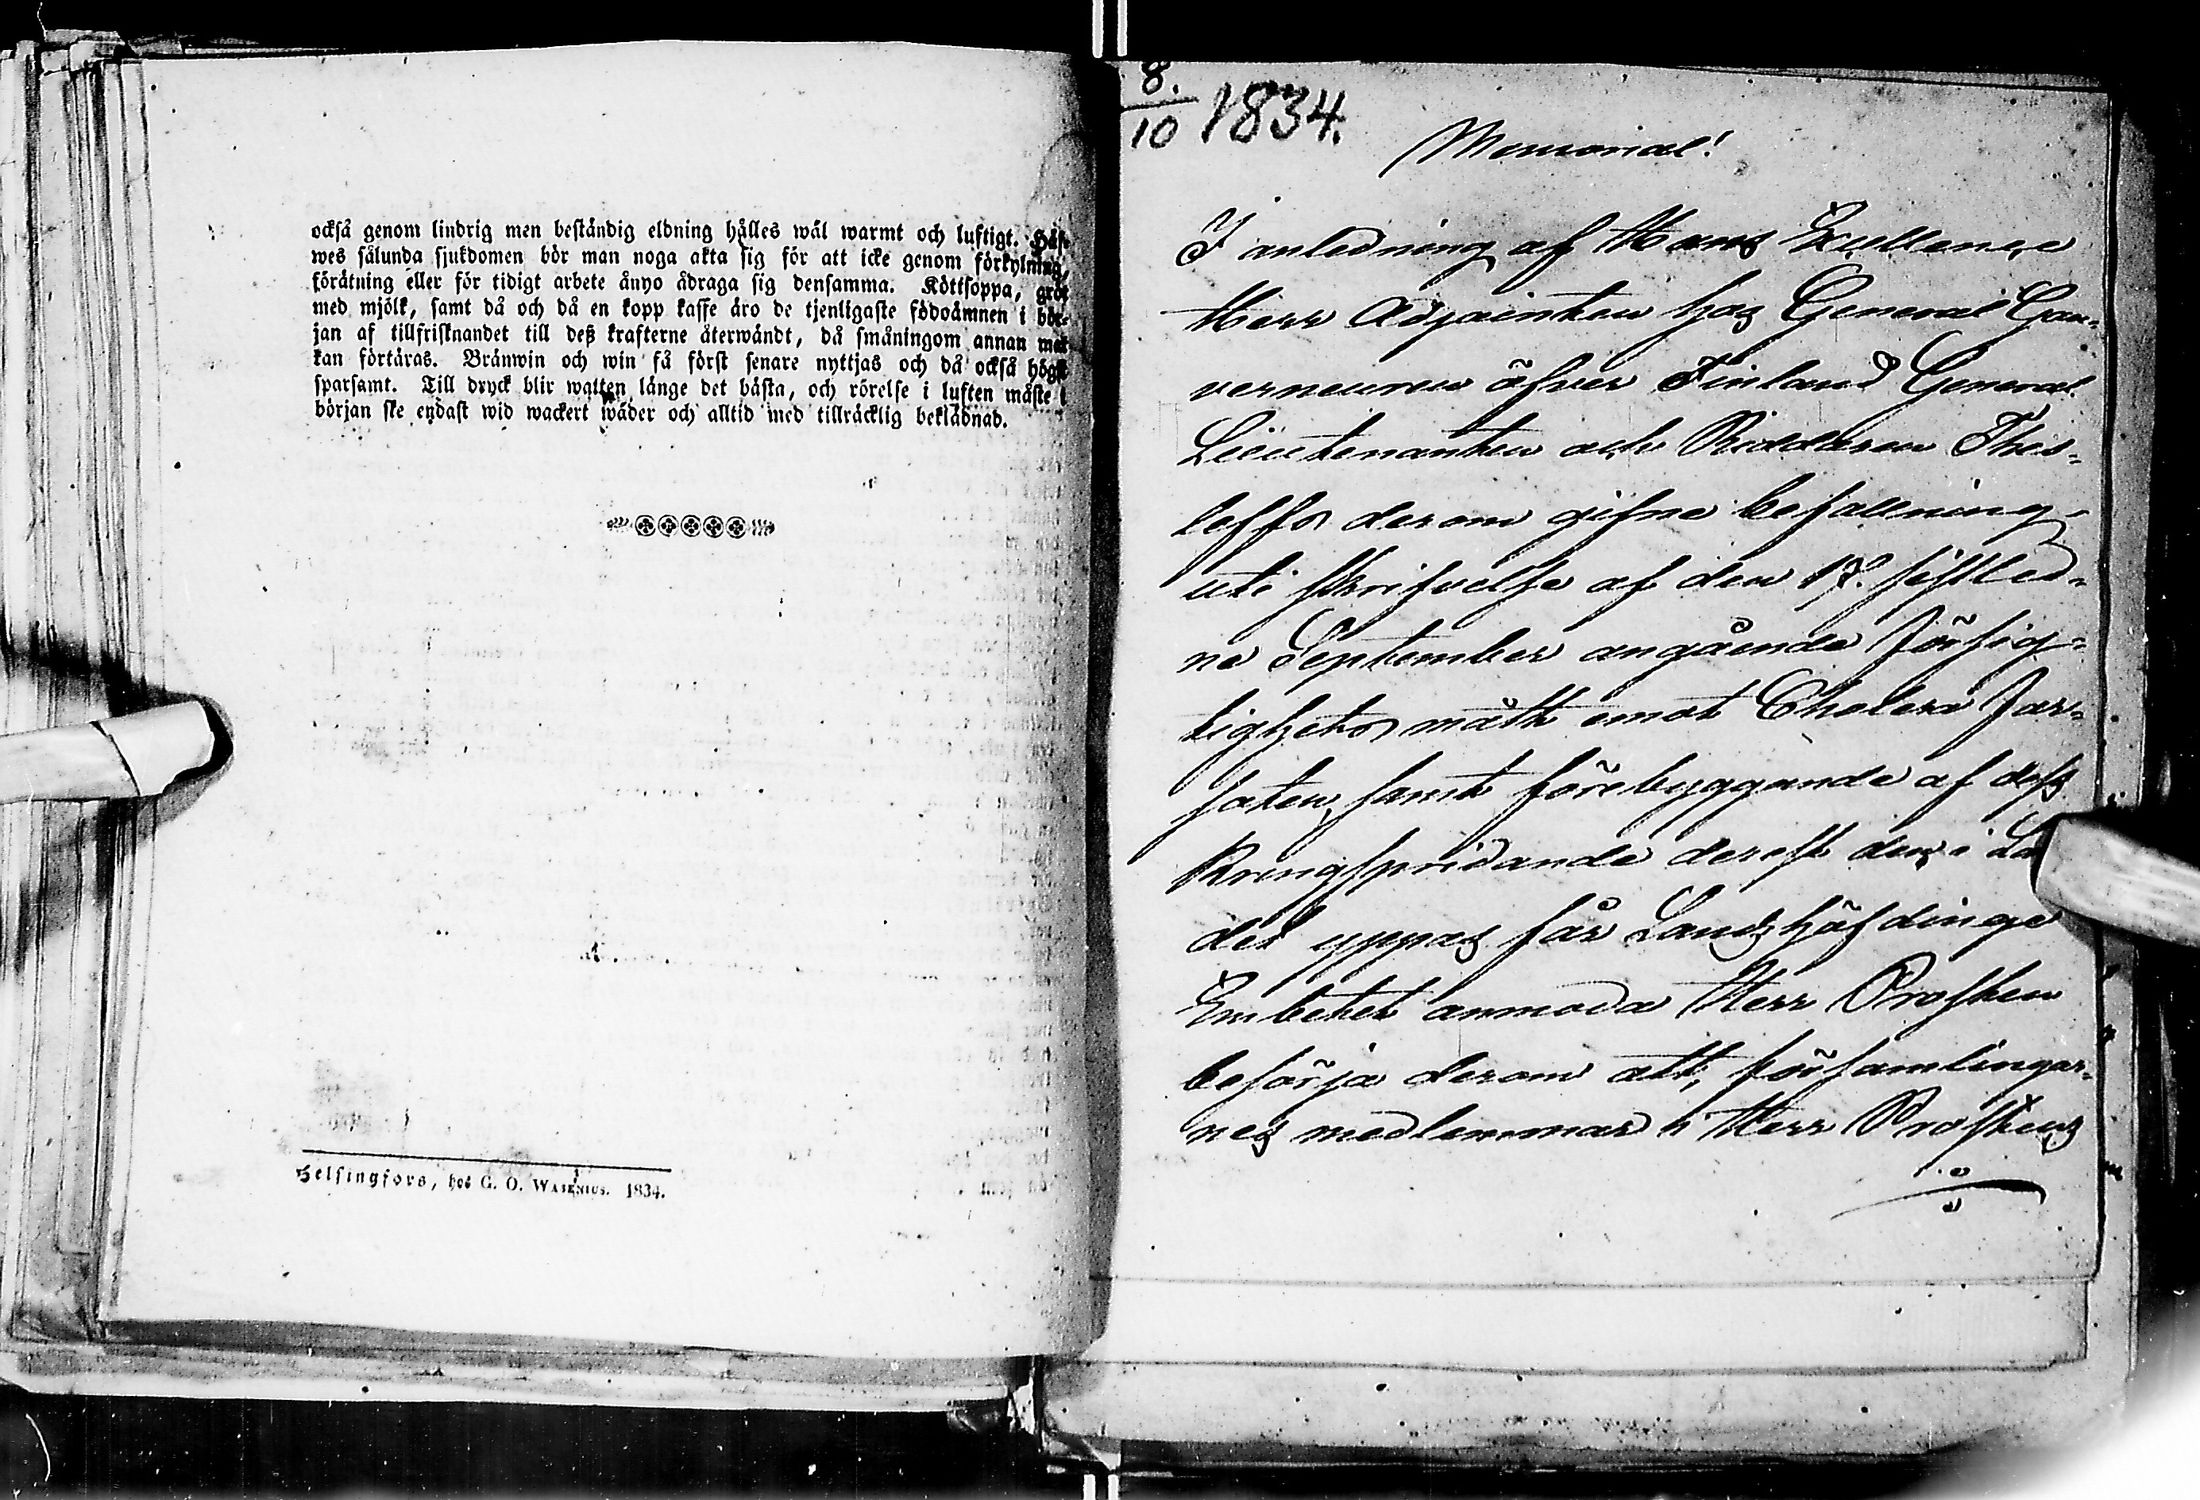 också genom lindrig men beständig eldning hålles wäl warmt och luftigt. Häf-
wes sålunda sjukdomen bör man noga akta sig för att icke genom förkylning,
förätning eller för tidigt arbete ånyo ådraga sig densamma. Köttsoppa, gröt
med mjölk, samt då och då en kopp kaffe äro de tjenligaste födoämnen i bör-
jan af tillfrisknandet till deß krafterne återwändt, då småningom annan mat
kan förtäras. Bränwin och win få först senare nyttjas och då också högst
sparsamt. Till dryck blir watten länge det bästa, och rörelse i luften måste i
början ske endast wid wackert wäder och alltid med tillräcklig beklädnad.
Helsingfors, hos G. O. WASENIUS. 1834.
8.
10 1834.
Memorial!
I anledning af Hans Excellence
Herr Adjointen hos General Gou-
verneuren öfver Finland General
Lieutenanten och Riddaren Thes-
leffs derom gifne befallning
uti skrifvelse af den 17. sistled-
ne September angående försig-
tighets mått emot Cholera Far-
soten, samt förebyggande af dess
kringspridande derest den i La
det yppas får Landshöfdinge
Embetet anmoda Herr Prosten
besörja derom att, församlingar-
nes medlemmar i Herr Prostens